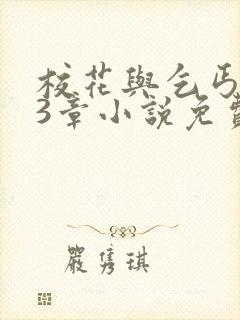 校花與乞丐
3章小說免費
嚴雋琪